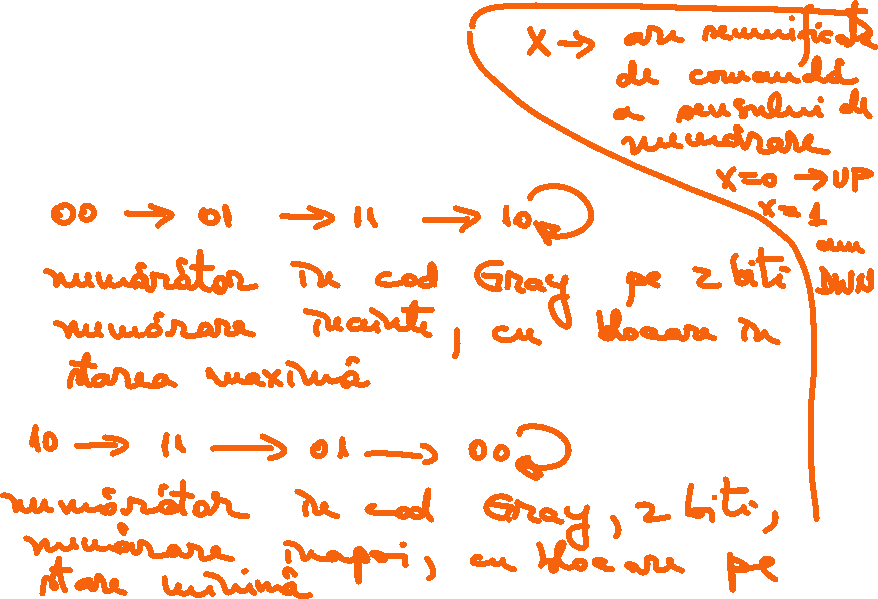 X → are semnificația
de comandă
a sensului de
numărare
X=0 → UP
X=1
am
DWN
00 → 01 → 11 → 10
numărător în cod Gray pe 2 biți
numărare înainte, cu blocare în
starea maximă
10 → 11 → 01 → 00
numărător în cod Gray, 2 biți,
numărare înapoi, cu blocare pe
stare minimă